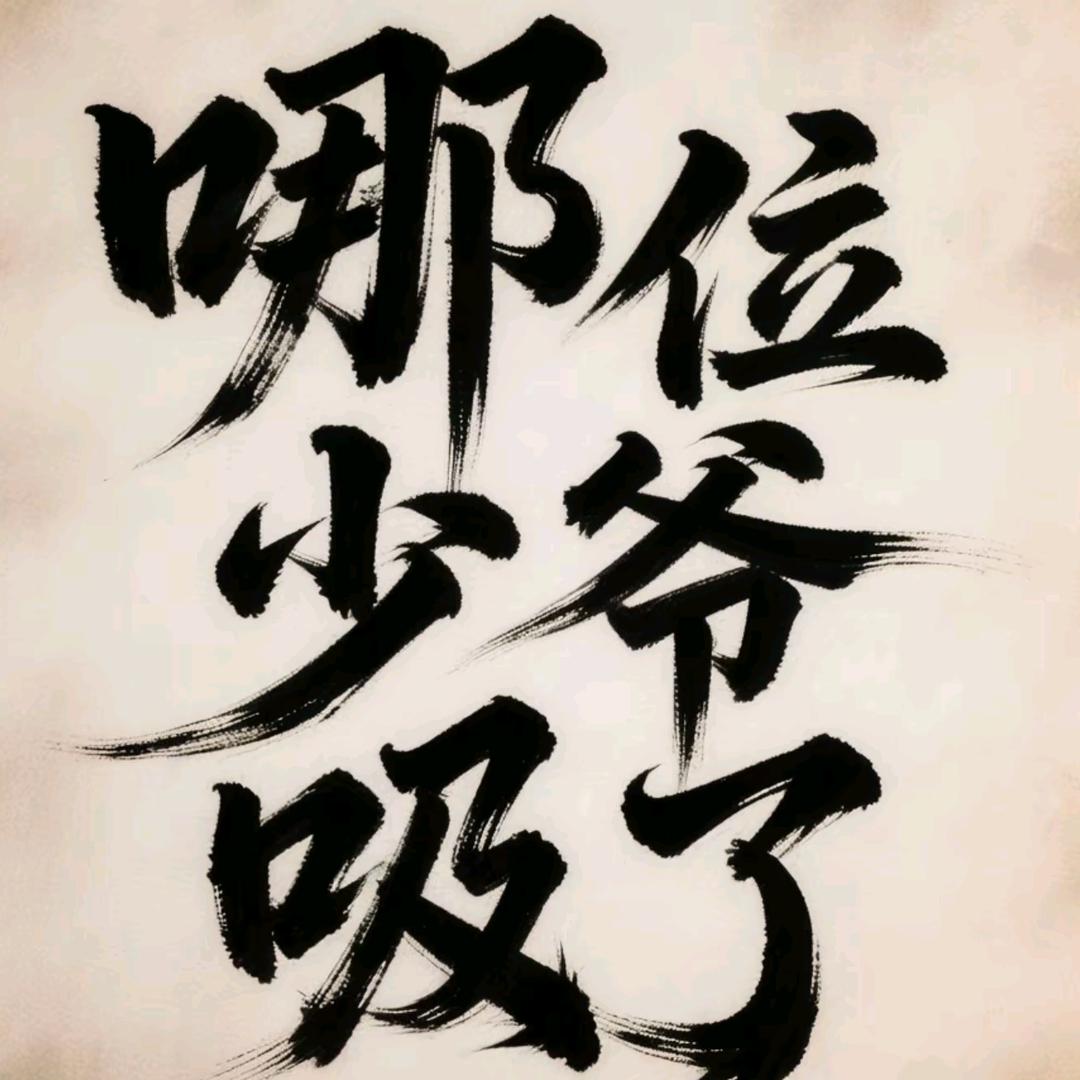 哪位
少爷
吸了